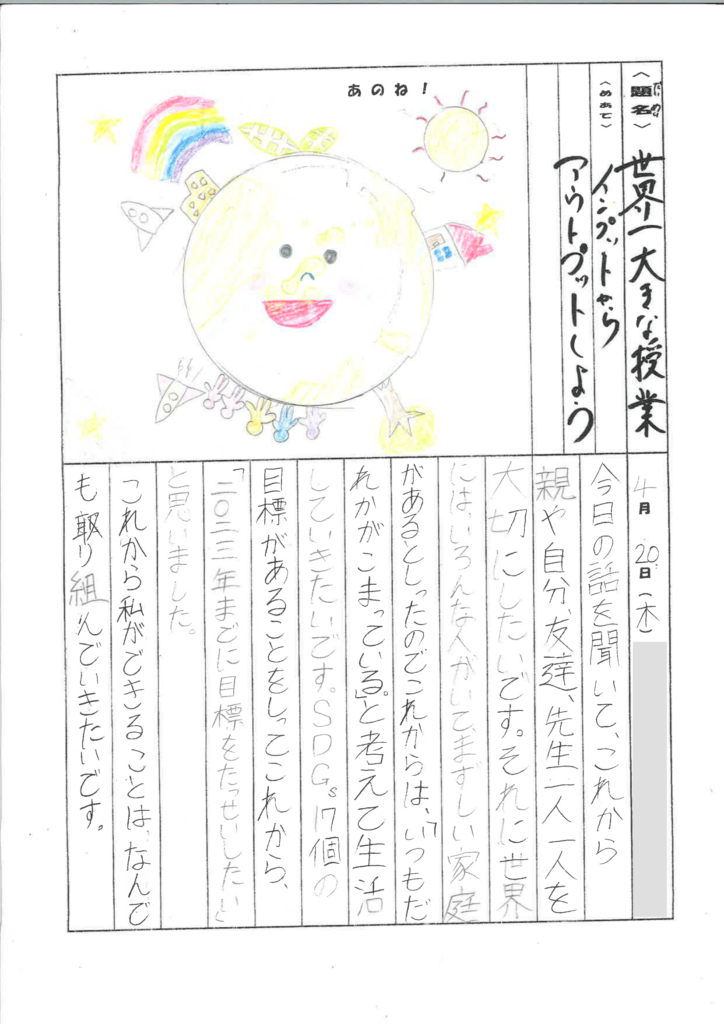 あのね！
〈題名〉世界一大きな授業
だいめい
〈めあて〉インプットから
アウトプットしよう
4月20日（木）
今日の話を聞いて、これから
親や自分、友達、先生一人一人を
大切にしたいです。それに世界
にはいろんな人がいて、まずしい家庭
があるとしったのでこれからは、「いつもだ
れかがこまっている。」と考えて生活
していきたいです。SDGs17個の
目標があることをしってこれから、
「二〇二三年までに目標をたっせいしたい」
と思いました。
これから私ができることは、なんで
も取り組んでいきたいです。